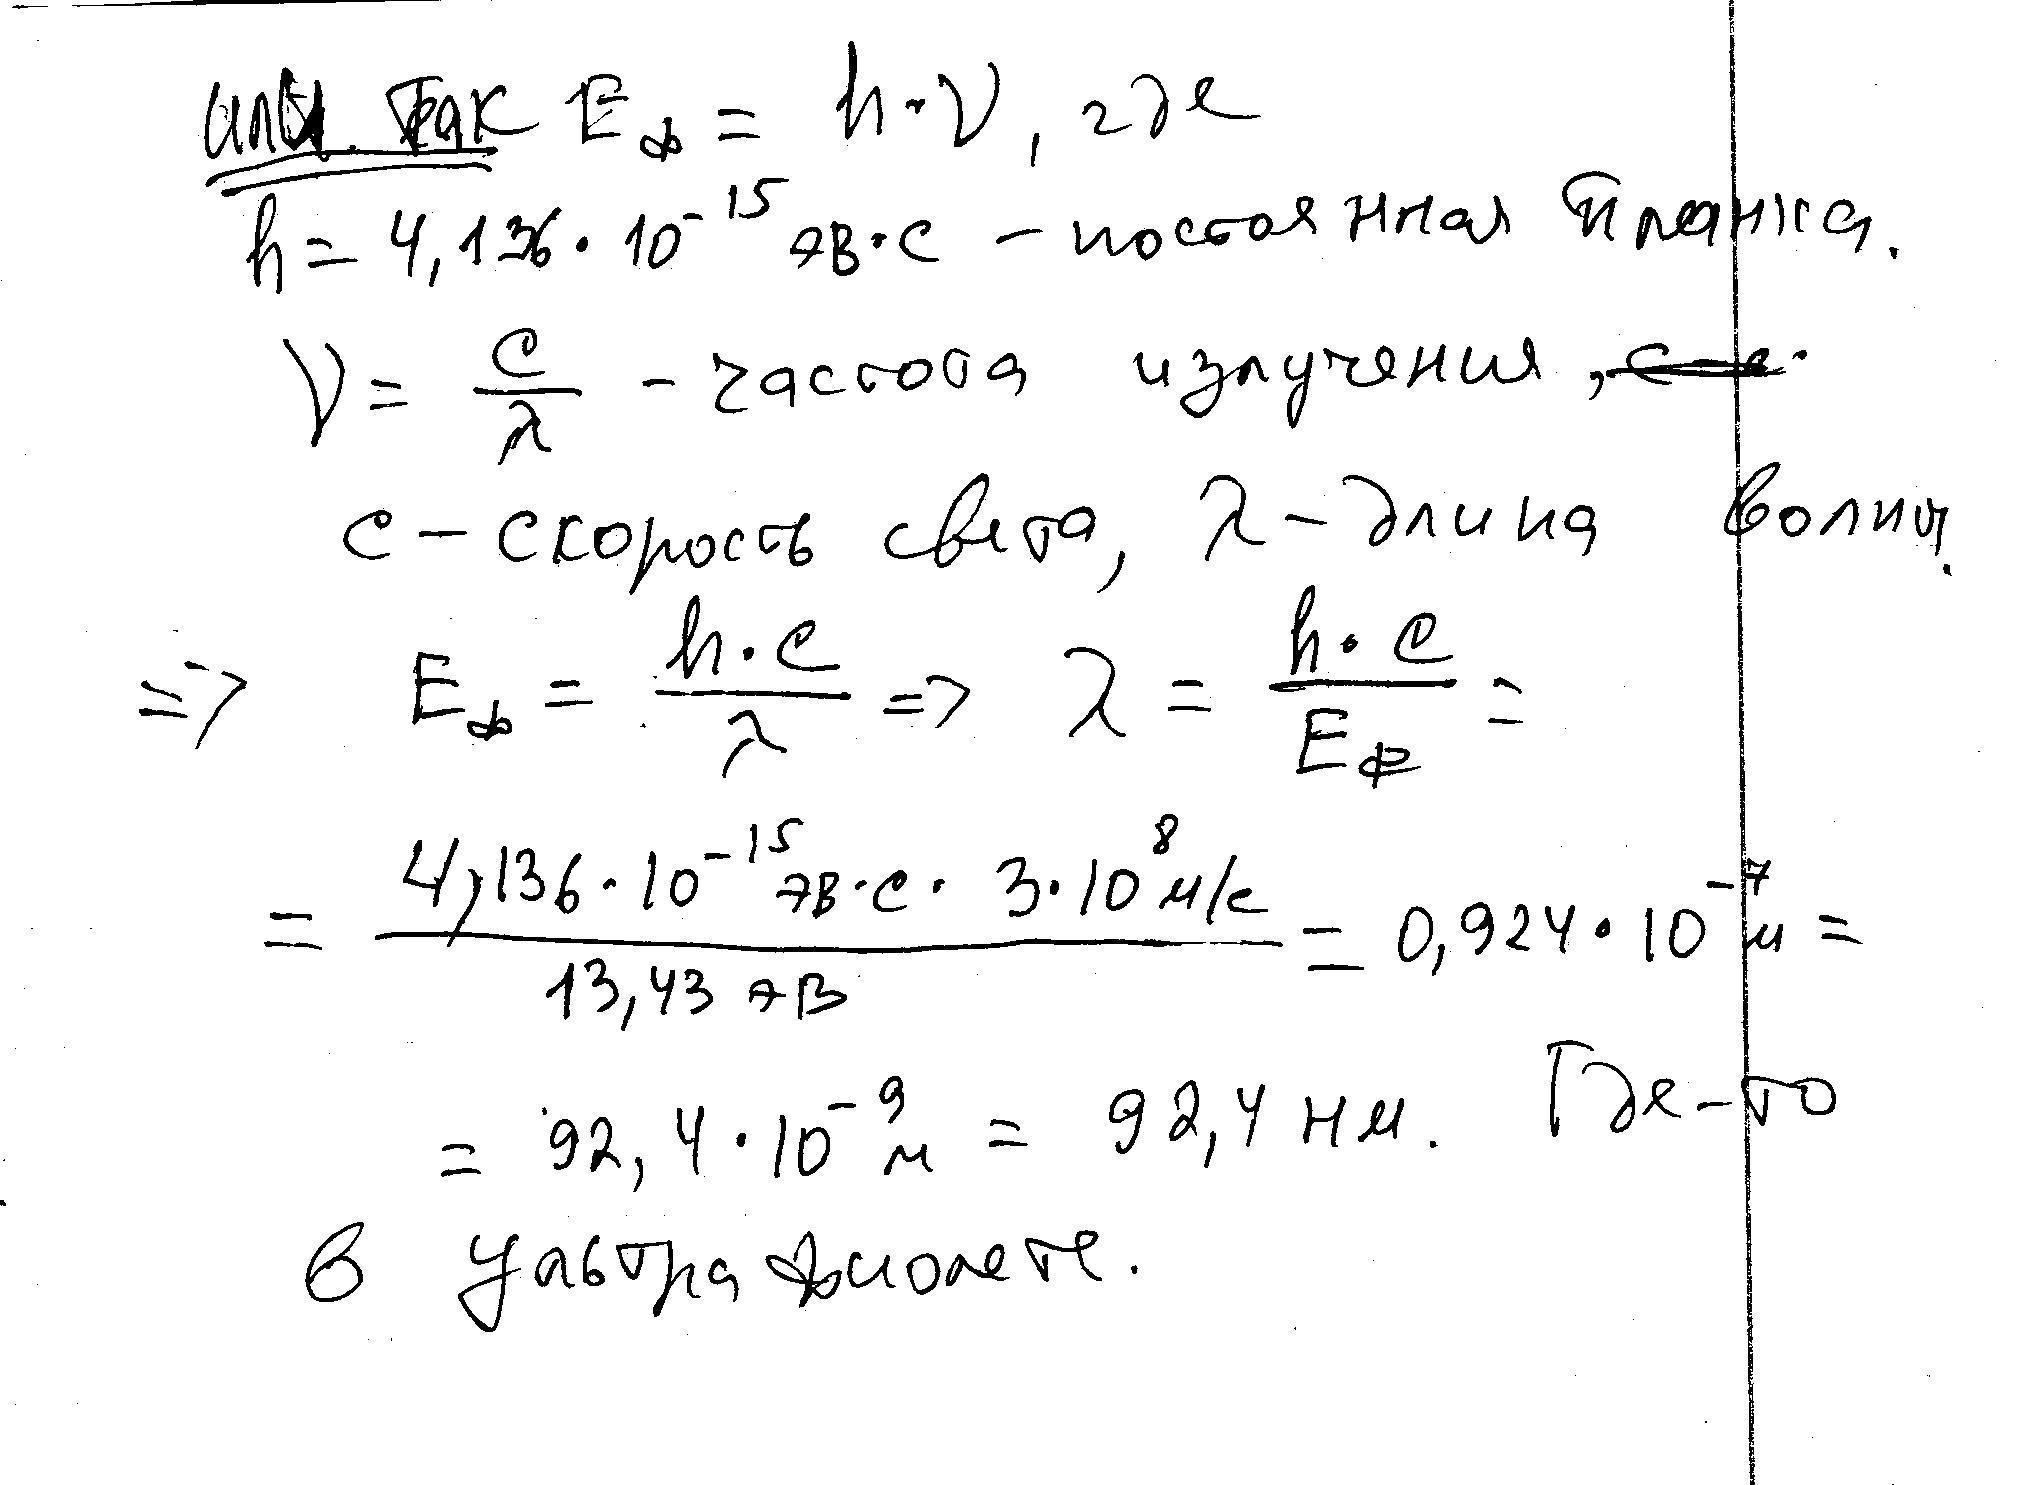 или так E_ф = h·ν, где
h = 4,136·10⁻¹⁵ эВ·с – постоянная Планка.
ν = c/λ – частота излучения,
c – скорость света, λ – длина волны.
=> E_ф = h·c/λ => λ = h·c/E_ф =
= 4,136·10⁻¹⁵ эВ·с · 3·10⁸ м/с / 13,43 эВ = 0,924·10⁻⁷ м =
= 92,4·10⁻⁹ м = 92,4 нм. Где-то
в ультрафиолете.